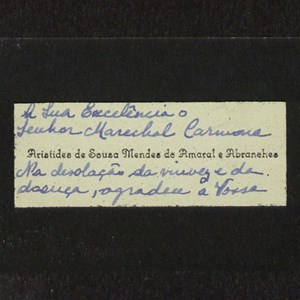 A Sua Excelência o
Senhor Marechal Carmona
Aristides de Sousa Mendes do Amaral e Abranches
Na desolação da viuvez e da
doença, agradece à Vossa